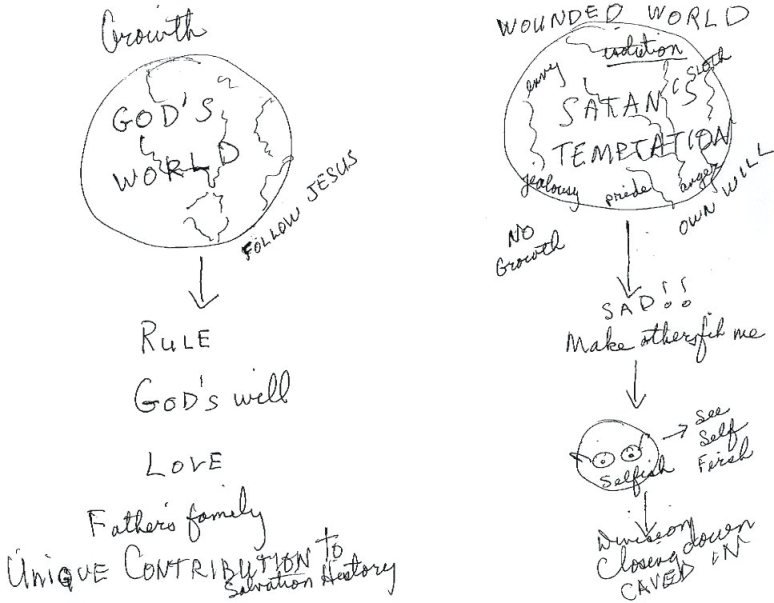 Growth
GOD'S
WORLD
FOLLOW JESUS
RULE
GOD'S will
LOVE
Father's family
UNIQUE CONTRIBUTION to
Salvation History
WOUNDED WORLD
envy
SLOTH
SATAN'S
TEMPTATION
jealousy
pride
anger
OWN WILL
NO
Growth
SAD!!
Make others me
Selfish
See
Self
Division
Closing down
CAVED IN